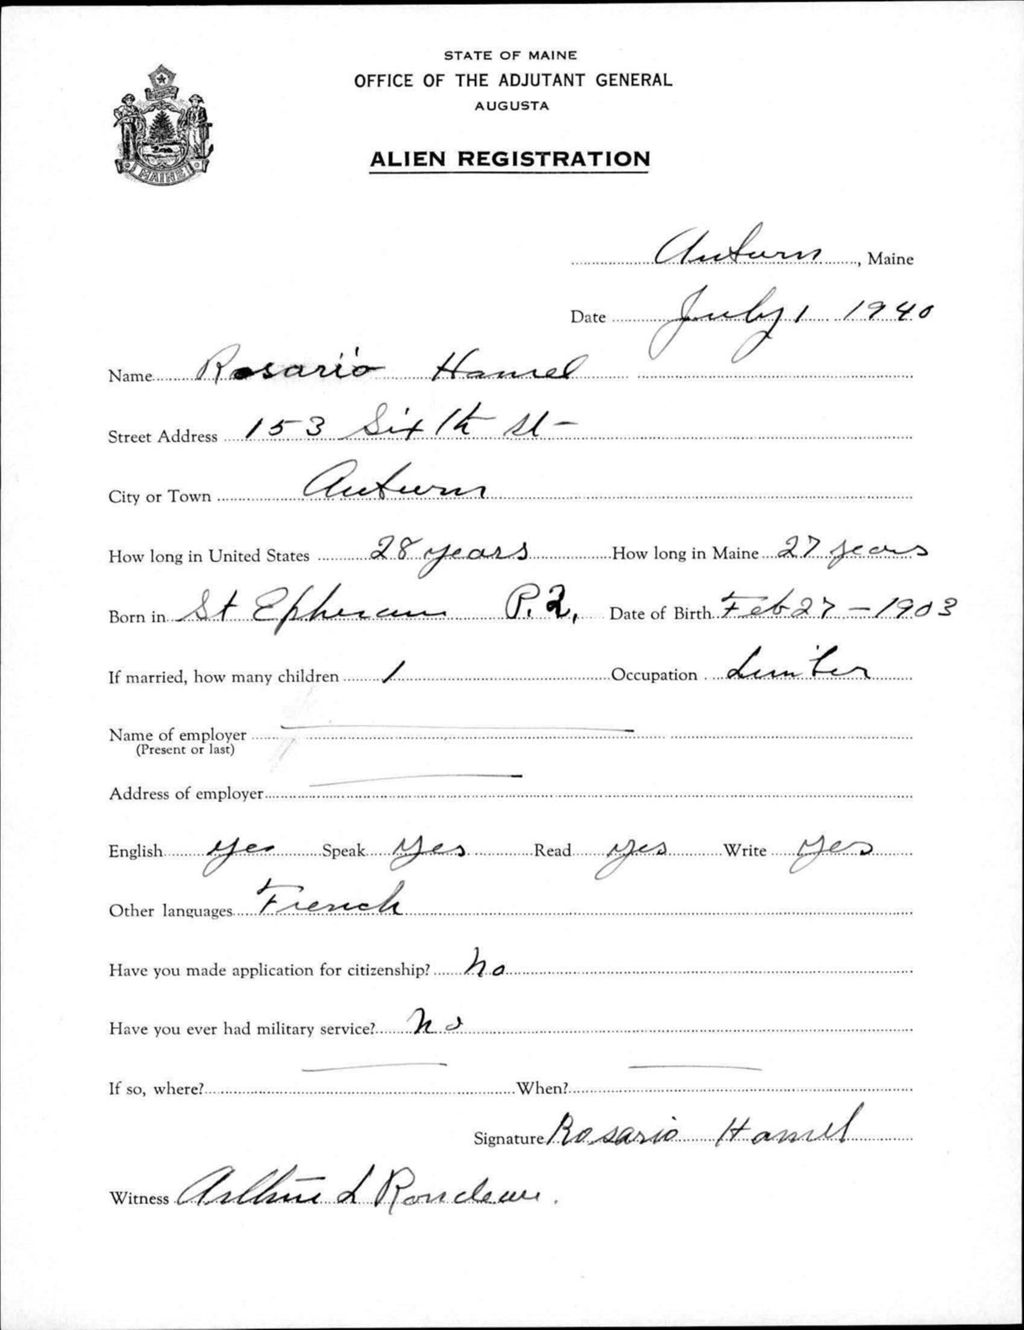 STATE OF MAINE
OFFICE OF THE ADJUTANT GENERAL
AUGUSTA
MAINE
ALIEN REGISTRATION
Auburn, Maine
Date July 1 1940
Name Rosario Hamel
Street Address 153 Sixth St-
City or Town Auburn
How long in United States 28 years How long in Maine 27 years
Born in St Ephream P.Q, Date of Birth Feb 27 - 1903
If married, how many children 1 Occupation
Name of employer
(Present or last)
Address of employer
English yes Speak yes Read yes Write yes
Other languages French
Have you made application for citizenship? No
Have you ever had military service? No
If so, where? When?
Signature Rosario Hamel
Witness Arthur L Rondeau.